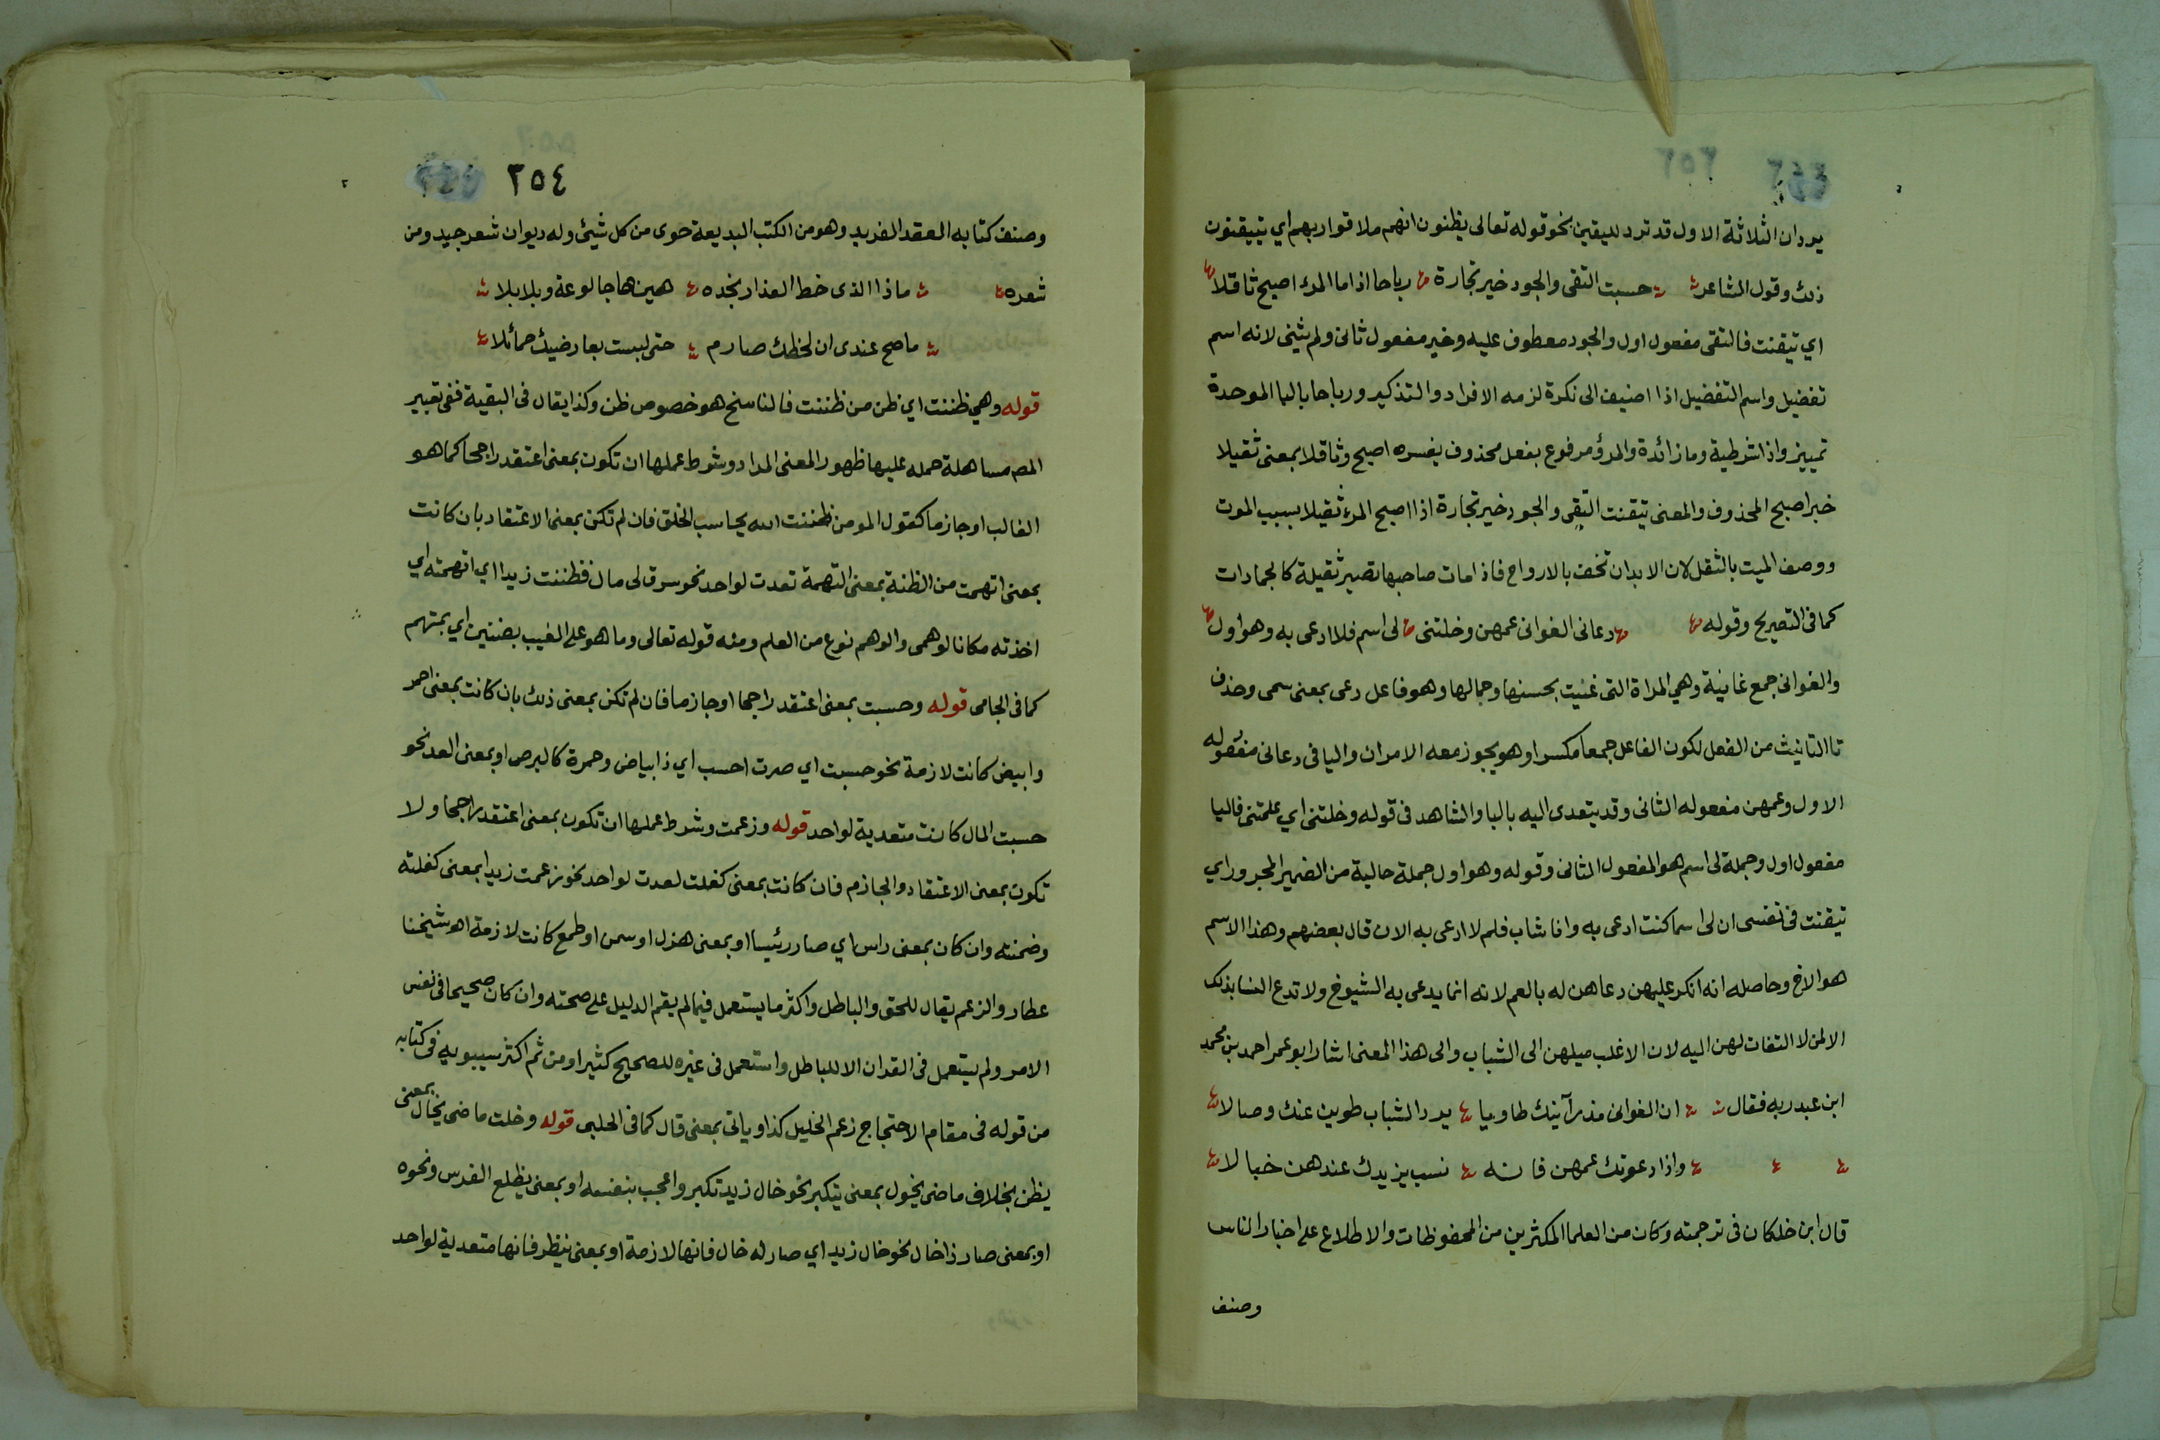 يردان الثلاثة الاول قد ترد لليقين نحو قوله تعالى يظنون انهم ملاقوا ربهم اي يتيقنون
ذلك وقول الشاعر حسبت التقى والجود خير تجارة رباحا اذا ما المرء اصبح ثاقلا
اي تيقنت فالتقى مفعول اول والجود معطوف عليه وخير مفعول ثانى ولم يثنى لانه اسم
تفضيل واسم التفضيل اذا اضيف الى نكرة لزمه الافراد والتذكير ورباحا بالبا الموحدة
تمييز واذا شرطية وما زائدة والمرؤ مرفوع بفعل محذوف يفسره اصبح وثاقلا بمعنى ثقيلا
خبر اصبح المحذوف والمعنى تيقنت التقى والجود خير تجارة اذا اصبح المرء ثقيلا بسبب الموت
ووصف الميت بالثقل لان الابدان تخف بالارواح فاذا مات صاحبها تصير ثقيلة كالجمادات
كما فى التصريح وقوله دعانى الغوانى عمهن وخلتنى لى اسم فلا ادعى به وهو اول
والغوانى جمع غانية وهي المراة التى غنيت بحسنها وجمالها وهو فاعل دعى بمعنى سمى وحذف
تا التانيث من الفعل لكون الفاعل جمعا مكسرا وهو يجوز معه الامران واليا فى دعانى مفعوله
الاول وعمهن مفعوله الثانى وقد يتعدى اليه بالبا والشاهد فى قوله وخلتنى اي علمتنى فاليا
مفعول اول وجملة لى اسم هو المفعول الثانى وقوله وهو اول جملة حالية من الضمير المجرور اي
تيقنت فى نفسى ان لى اسما كنت ادعى به وانا شاب فلم لا ادعى به الان قال بعضهم وهذا الاسم
هو الاخ وحاصله انه انكر عليهن دعاهن له بالعم لانه انما يدعى به الشيوخ ولا تدع النسا بذلك
الا لمن لا التفات لهن اليه لان الاغلب ميلهن الى الشباب والى هذا المعنى اشار ابو عمر احمد بن محمد
ابن عبد ربه فقال ان الغوانى مذ رآينك طاويا برد الشباب طوين عنك وصالا
واذا دعوتك عمهن فانه نسب يزيدك عندهن خبالا
قال ابن خلكان فى ترجمته وكان من العلما المكثرين من المحفوظات والاطلاع على اخبار الناس
وصنف
٢٥٤
وصنف كتابه العقد الفريد وهو من الكتب البديعة حوى من كل شيئ وله ديوان شعر جيد ومن
شعره ماذا الذى خط العذار بخده همين هاجا لوعة وبلابلا
ما صح عندى ان لحظك صارم حتى لبست بعارضيك حمائلا
قوله وهي ظننت اي ظن من ظننت فالناسخ هو خصوص ظن وكذا يقال فى البقية ففى تعبير
المص مساهلة حمله عليها ظهور المعنى المراد وشرط عملها ان تكون بمعنى اعتقد راجحا كما هو
الغالب او جازما كقول المومن ظننت الله يحاسب الخلق فان لم تكن بمعنى الاعتقاد بان كانت
بمعنى اتهمت من الظنة بمعنى التهمة تعدت لواحد نحو سرق لى مال فظننت زيدا اي اتهمته اي
اخذته مكانا لوهمى والوهم نوع من العلم ومنه قوله تعالى وما هو على الغيب بضنين اي بمتهم
كما فى الجامى قوله وحسبت بمعنى اعتقد راجحا او جازما فان لم تكن بمعنى ذلك بان كانت بمعنى احمر
وابيض كانت لازمة نحو حسبت اي صرت احسب اي ذا بياض وحمرة كالبرص او بمعنى العد نحو
حسبت المال كانت متعدية لواحد قوله وزعمت وشرط عملها ان تكون بمعنى اعتقد راجحا ولا
تكون بمعنى الاعتقاد والجازم فان كانت بمعنى كفلت لعدت لواحد نحو زعمت زيدا بمعنى كفلته
وضمنته وان كان بمعنى راس اي صار رئيسا او بمعنى هزل او سمن او طمع كانت لازمة اه شيخنا
عطار والزعم يقال للحق والباطل واكثر ما يستعمل فيما لم يقم الدليل على صحته وان كان صحيحا فى نفس
الامر ولم يستعمل فى القران الا للباطل واستعمل فى غيره للصحيح كثيرا ومن ثم اكثر سيبويه فى كتابه
من قوله فى مقام الاحتجاج زعم الخليل كذا وياتى بمعنى قال كما فى الحلبى قوله وخلت ماضى يخال بمعنى
يظن بخلاف ماضى يخول بمعنى يتكبر نحو خال زيد تكبر واعجب بنفسه او بمعنى يظلع الفرس ونحوه
او بمعنى صار ذا خال نحو خال زيد اي صار له خال فانها لازمة او بمعنى ينظر فانها متعدية لواحد